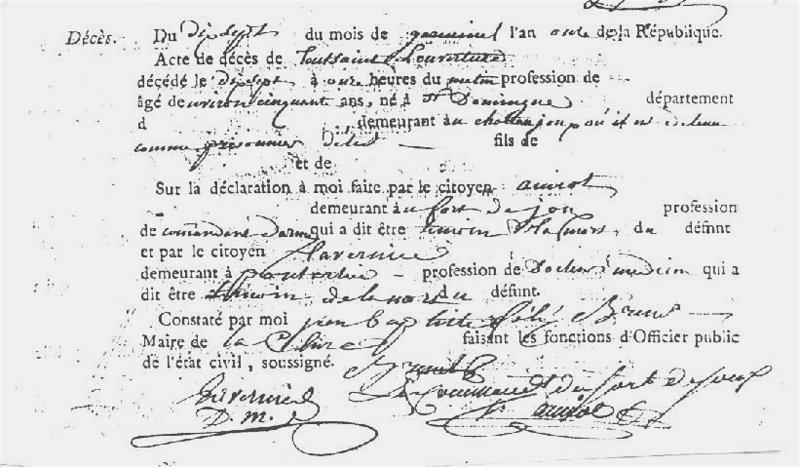 Décès. Du dix sept du mois de germinal l'an onze de la République.
Acte de décès de Toussaint Louverture
décédé le dix sept à onze heures du matin profession de
âgé de environ cinquant ans, né à St Domingue département
d , demeurant au chatteau jou où il est detenu
comme prisonnier detat fils de
et de
Sur la déclaration à moi faite par le citoyen amiot
demeurant au fort de jou profession
de comandant darme qui a dit être temoin de la mort du défunt
et par le citoyen Gavernier
demeurant à pontarlier profession de Docteur medecin qui a
dit être temoin de la mort du défunt.
Constaté par moi jean baptiste
Maire de la Cluse faisant les fonctions d'Officier public
de l'état civil, soussigné.
Le Commandant du fort de joux
D. m. amiot